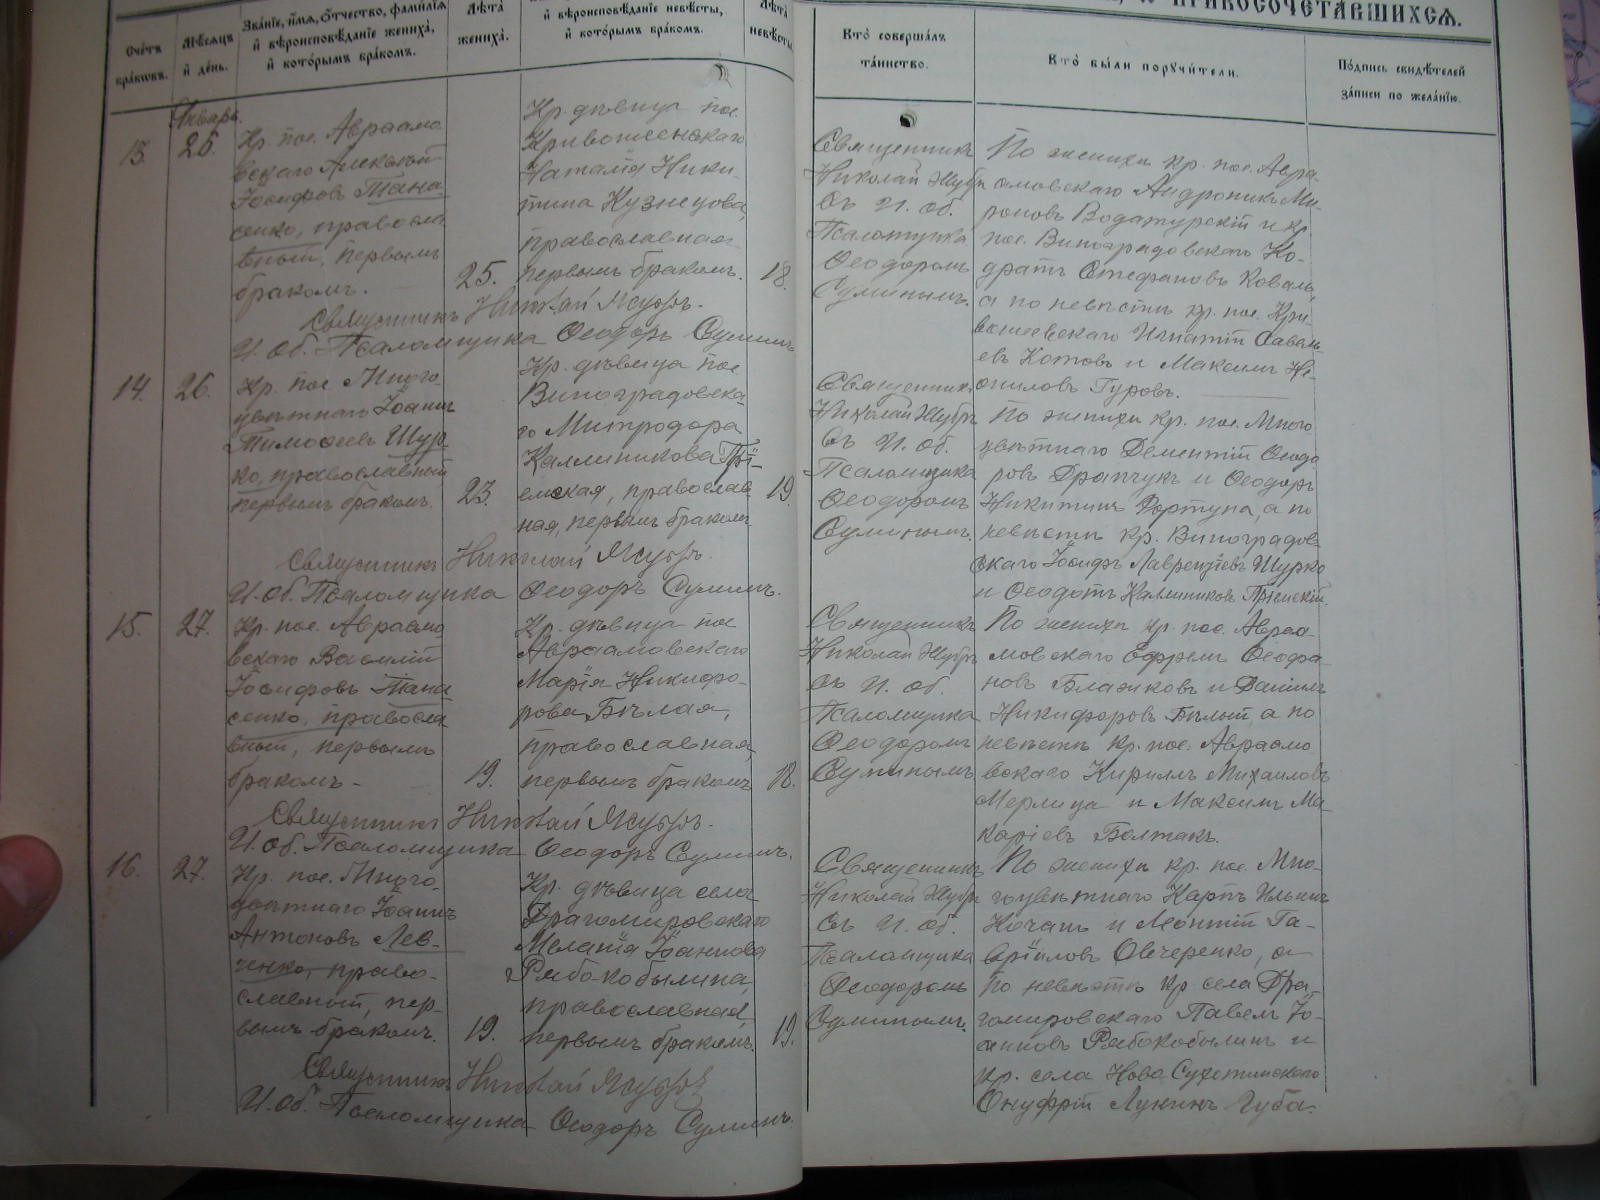 и бракосочетавшихся.
Счетъ браковъ.
Мѣсяцъ и день.
Званіе, имя, отчество, фамилія
и вѣроисповѣданіе жениха,
и которымъ бракомъ.
Лѣта жениха.
и вѣроисповѣданіе невѣсты,
и которымъ бракомъ.
Лѣта невѣсты
Кто совершалъ
таинство.
Кто были поручители.
Подпись свидѣтелей
записи по желанію.
Январь.
13. 25.
Кр. пос. Авраамо
вскаго Алексѣй
Іосифовъ Тана
сенко, правосла
вный, первымъ
бракомъ.
25.
Кр. дѣвица пос.
Наталія Ники
тина Кузнецова,
православная
первымъ бракомъ.
18.
Священникъ
Николай
съ И. об.
Псаломщика
Ѳеодоромъ
По женихѣ кр. пос. Авра
амовскаго Андроникъ Ми
роновъ и кр.
пос. Виноградовскаго Ко
дратъ Стефановъ Коваль,
а по невѣстѣ кр. пос. Кри
вошеевскаго Игнатій Саваль
евъ Котовъ и Максимъ
Гуровъ.
Священникъ Николай
И. об. Псаломщика Ѳеодоръ
14. 26.
Кр. пос. Много
цвѣтнаго Іоаннъ
Тимоѳеевъ Шур
ко, православный
первымъ бракомъ.
23.
Кр. дѣвица пос.
Виноградовска
го Митродора
Каллиникова
православ
ная, первымъ бракомъ
19
Священникъ
Николай
съ И. об.
Псаломщика
Ѳеодоромъ
По женихѣ кр. пос. Много
цвѣтнаго Дементій Ѳеодо
ровъ и Ѳеодоръ
Никитинъ Фортуна, а по
невѣстѣ кр. Виноградов
скаго Іосифъ Лаврентіевъ Шурко
и Ѳеодотъ Каллиниковъ
Священникъ Николай
И. об. Псаломщика Ѳеодоръ
15. 27.
Кр. пос. Авраамо
вскаго Василій
Іосифовъ Тана
сенко, правосла
вный, первымъ
бракомъ
19.
Кр. дѣвица пос
Авраамовскаго
Марія Никифо
рова Бѣлая,
православная,
первымъ бракомъ
18.
Священникъ
Николай
съ И. об.
Псаломщика
Ѳеодоромъ
По женихѣ кр. пос. Авраа
мовскаго Ефремъ Ѳеофа
новъ Блажковъ и Даніилъ
Никифоровъ Бѣлый, а по
невѣстѣ кр. пос. Авраамо
вскаго Кириллъ Михаиловъ
Мерлица и Максимъ Ма
каріевъ Болтакъ.
Священникъ Николай
И. об. Псаломщика Ѳеодоръ
16. 27.
Кр. пос. Много
цвѣтнаго Іоаннъ
Антоновъ Лев
ченко, право
славный, пер
вымъ бракомъ.
19.
Кр. дѣвица села
Драгомировскаго
Меланія Іоаннова
Рябокобылина,
православная,
первымъ бракомъ.
19.
Священникъ
Николай
съ И. об.
Псаломщика
Ѳеодоромъ
По женихѣ кр. пос. Мно
гоцвѣтнаго Карпъ Ильинъ
Кочанъ и Леонтій Га
вріиловъ Овчеренко, а
по невѣстѣ кр села Дра
гомировскаго Павелъ Іо
анновъ Рябокобылинъ и
кр. села Ново
Онуфрій Лукинъ Губа.
Священникъ Николай
И. об. Псаломщика Ѳеодоръ